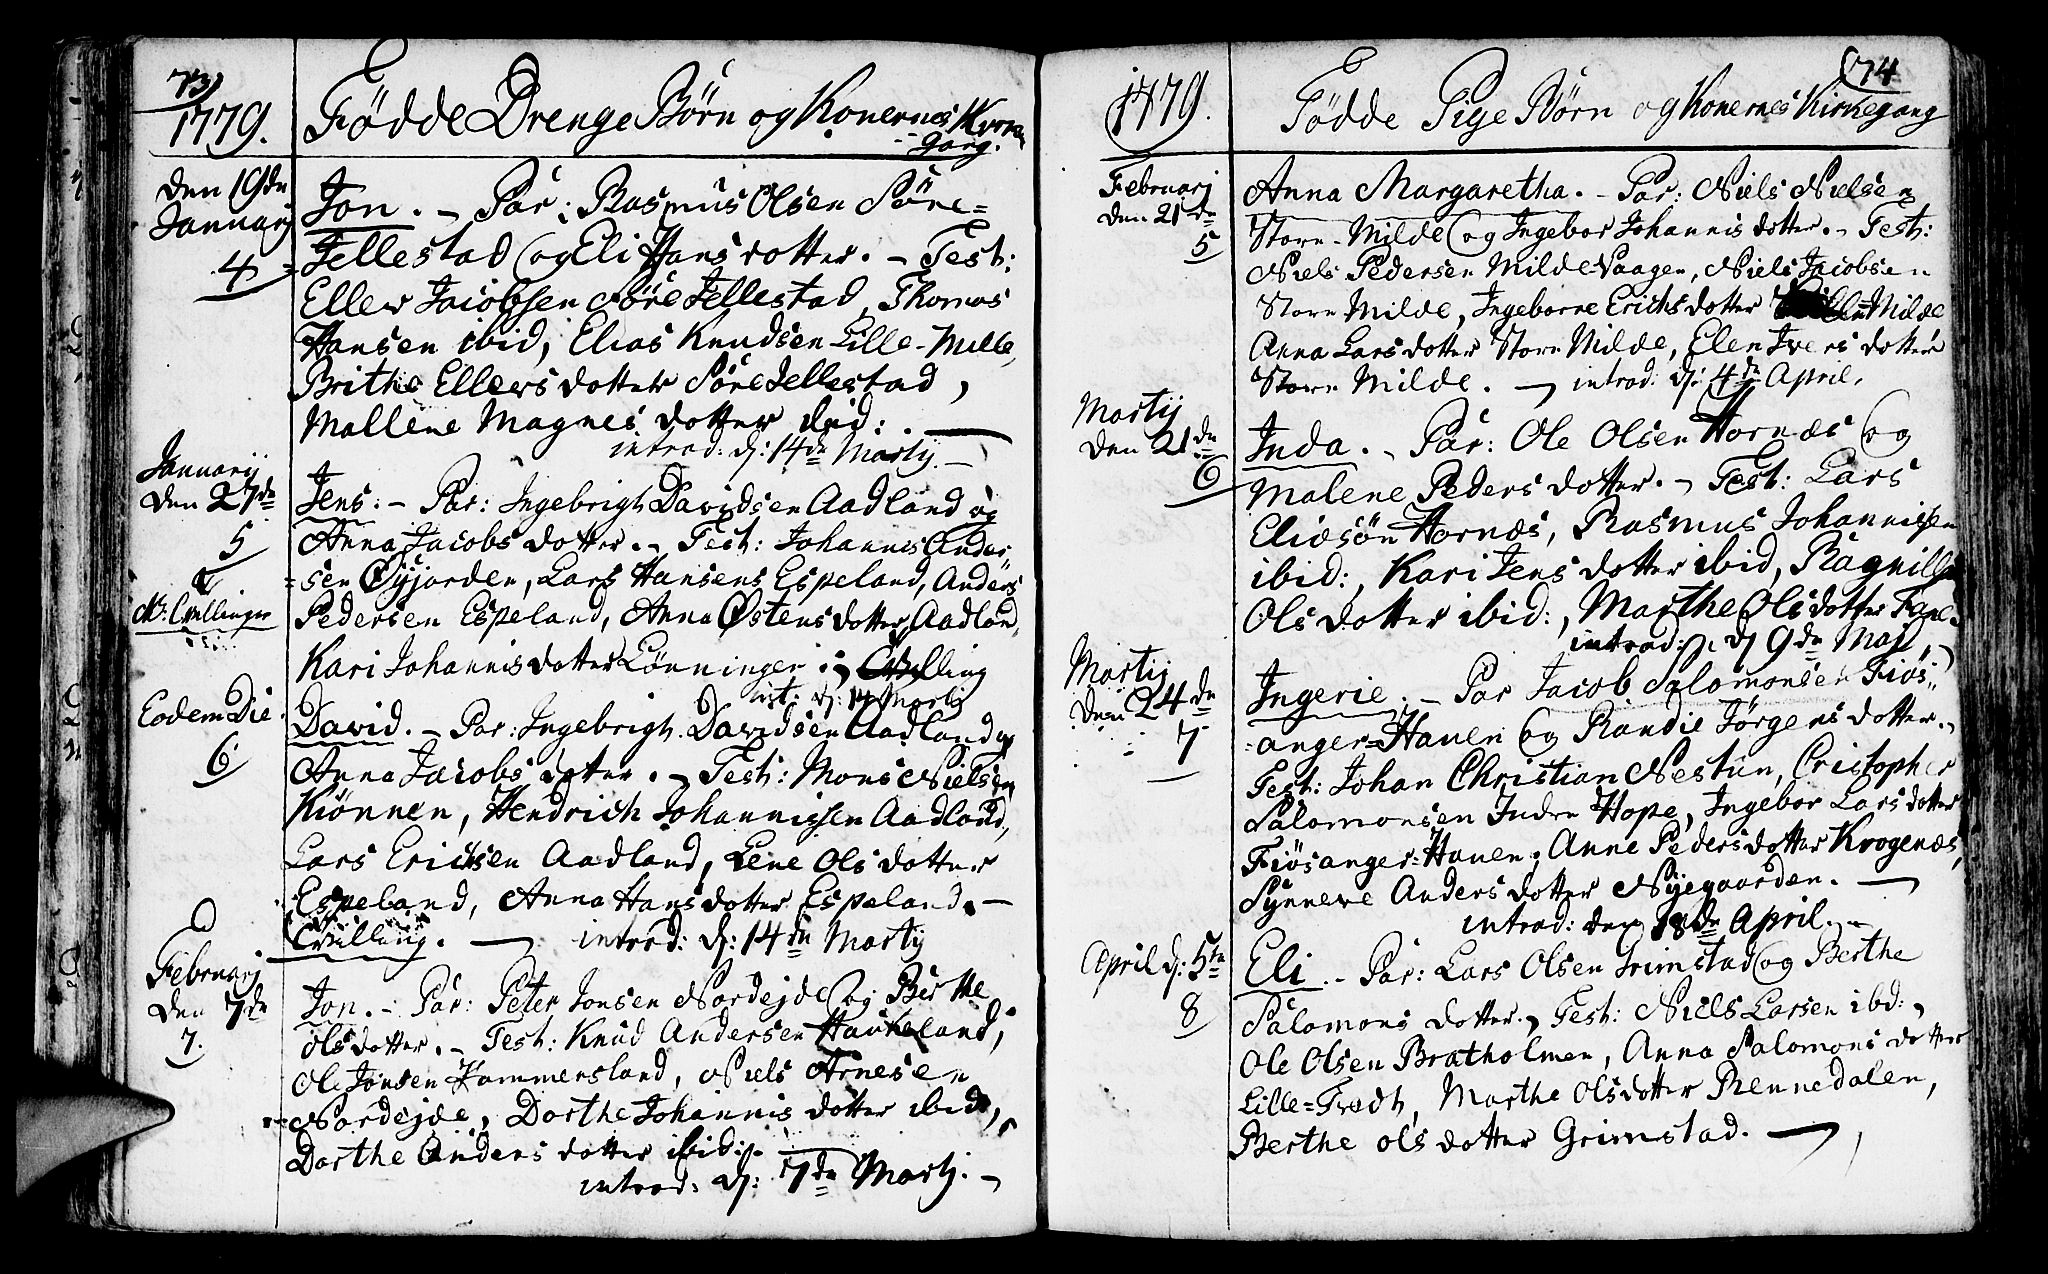 73
1779. Födde Drenge Börn og Konernes Kirke
gang.
den 19de
Januarij
4
Jon. - Par: Rasmus Olsen Söre=
Jellestad og Eli Hans dotter. - Test:
Eller Jacobsen Söre Jellestad, Thomas
Hansen ibid, Elias Knudsen Lille-Milde,
Brithe Ellers dotter Söre Jellestad,
Mallene Magnes dotter ibid:.
introd: d: 14de Martij. -
Januarij
den 27de
5
NB. Tvillinger
Jens. - Par: Ingebrigt Davidsen Aadland og
Anna Jacobs dotter. - Test: Johannes Ander
=sen Öyjorden, Lars Hansens Espeland, Anders
Pedersen Espeland, Anna Östens dotter Aadland,
Kari Johannis dotter Lönninger. Tvilling
int: d: 14 Martij
Eodem Die.
6
David. - Par: Ingebrigt Davidsen Aadland og
Anna Jacobs dotter. - Test: Mons Nielsen
Kiönnen, Hendrich Johannissen Aadland,
Lars Ericksen Aadland, Lene Ols dotter
Espeland, Anna Hans dotter Espeland. -
Tvilling. - introd: d: 14de Martij
Februarj
den 7de
7.
Jon. - Par: Peter Jonsen Nordejde og Berthe
Ols dotter. - Test: Knud Andersen Haukeland,
Ole Jonsen Hammersland, Niels Arnesen
Nordejde, Dorthe Johannis dotter ibid,
Dorthe Anders dotter ibid:.
introd: d: 7de Martj. -
74
1779. Födde Pige Börn og Konernes Kirkegang
Februarj
den 21de
5
Anna Margaretha. - Par: Niels Nielsen
Store-Milde og Ingebor Johannis dotter. - Test:
Niels Pedersen Milde-Vaagen, Niels Jacobsen
Store Milde, Ingeborre Erichs dotter Milde
Anna Lars dotter Store Milde, Elen Ivers dotter
Store Milde. - introd: d: 4de April.
Martij
den 21de
6
Inda. - Par: Ole Olsen Hornæs og
Malene Peders dotter. - Test: Lars
Eliæsön Hornæs, Rasmus Johannissen
ibid:, Kari Jens dotter ibid, Ragnille
Ols dotter ibid:, Marthe Ols dotter Fane.
introd: d 9de Maj
Martij
den 24de
7
Ingerie. - Par Jacob Salomonsen Fiös
=anger=Hauen og Randie Jörgens dotter. -
Test: Johan Christian Nestun, Cristopher
Salomonsen Indre Hope, Ingebor Lars dotter
Fiösanger=Hauen, Anne Peders dotter Krogenæs,
Synneve Anders dotter Nyegaarden. -
introd: den 18de April. -
April d: 5te
8
Eli. - Par: Lars Olsen Grimstad og Berthe
Salomons dotter. - Test: Niels Larsen ibd:,
Ole Olsen Bratholmen, Anna Salomons dotter
Lille=Tvedt, Marthe Ols dotter Rennedalen,
Berthe Ols dotter Grimstad. -